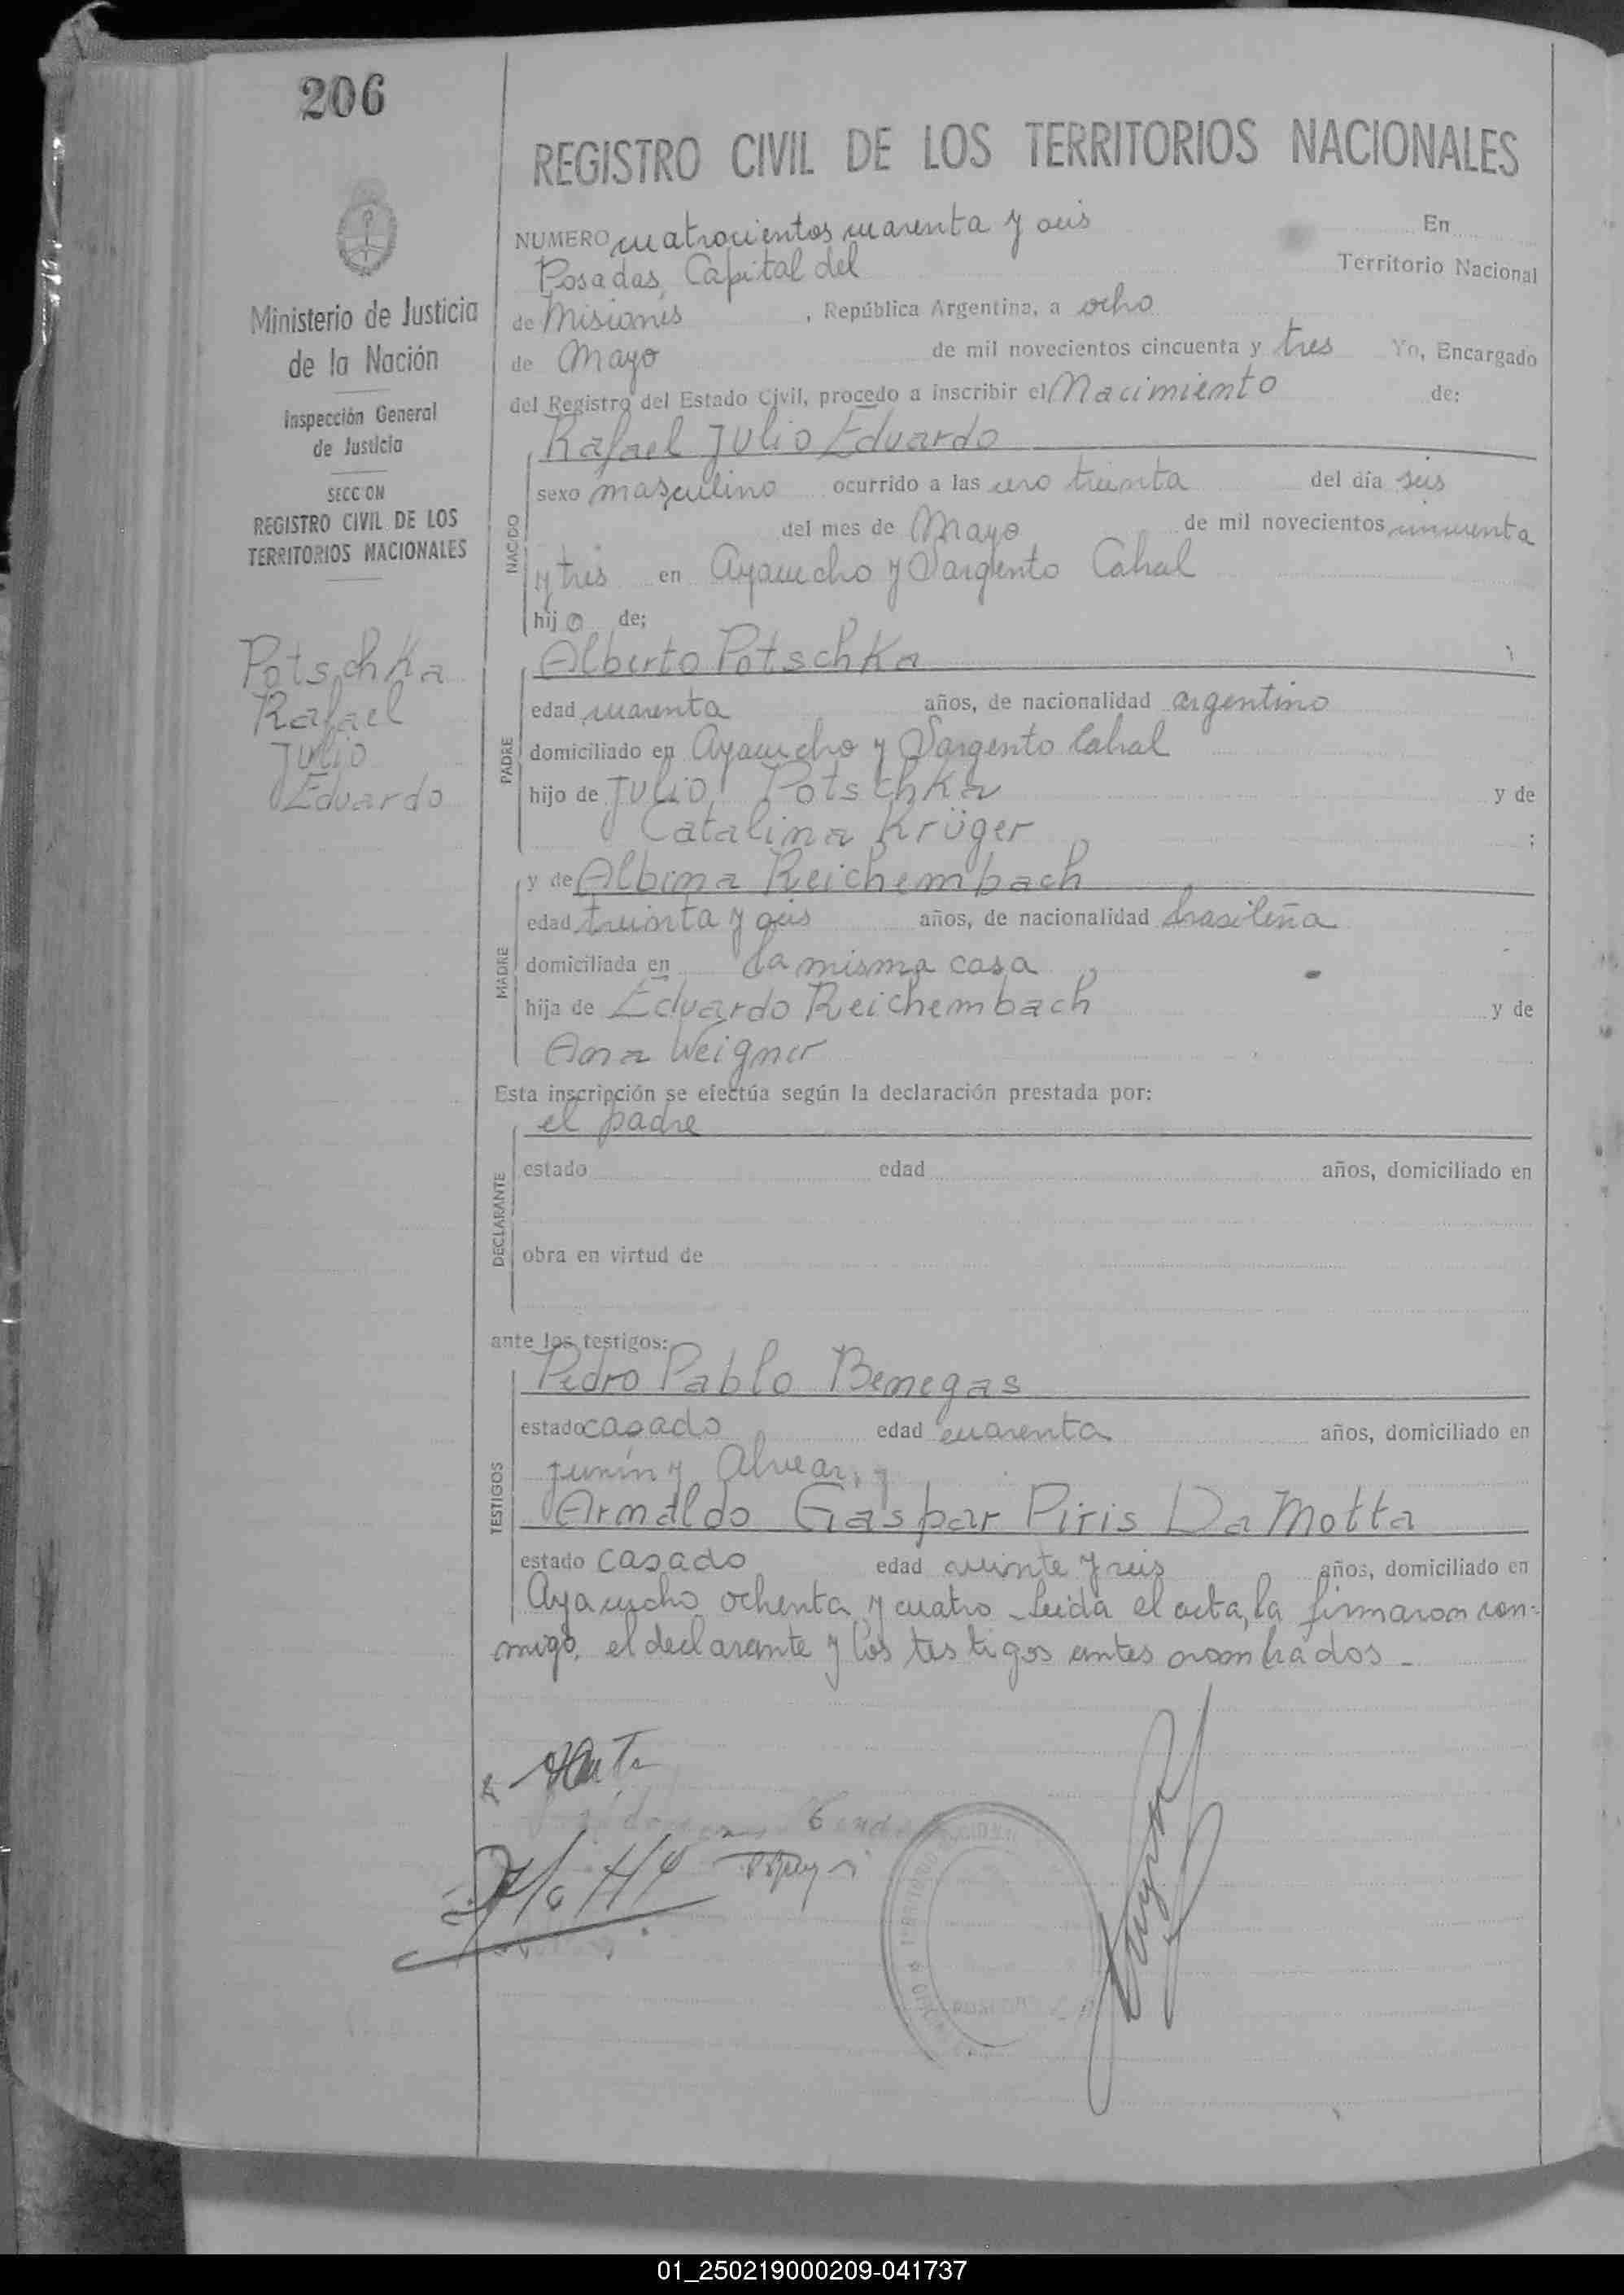 206
REGISTRO CIVIL DE LOS TERRITORIOS NACIONALES
NUMERO cuatrocientos cuarenta y seis En
Posadas, Capital del Territorio Nacional
de Misiones, República Argentina, a ocho
de Mayo de mil novecientos cincuenta y tres Yo, Encargado
del Registro del Estado Civil, procedo a inscribir el Nacimiento de:
Rafael Julio Eduardo
sexo masculino ocurrido a las uno treinta del día seis
del mes de Mayo de mil novecientos cincuenta
y tres en Ayacucho y Sargento Cabral
hijo de;
NACIDO
Alberto Potschka
edad cuarenta años, de nacionalidad argentino
domiciliado en Ayacucho y Sargento Cabral
hijo de Julio Potschka y de
Catalina Krüger ;
PADRE
y de Albina Reichembach
edad treinta y seis años, de nacionalidad brasileña
domiciliada en la misma casa
hija de Eduardo Reichembach y de
Ana Weigner
MADRE
Esta inscripción se efectúa según la declaración prestada por:
el padre
estado edad años, domiciliado en
obra en virtud de
DECLARANTE
ante los testigos:
Pedro Pablo Benegas
estado casado edad cuarenta años, domiciliado en
Junín y Alvear, y
Arnaldo Gaspar Piris Da Motta
estado casado edad veinte y seis años, domiciliado en
Ayacucho ochenta y cuatro - Leida el acta, la firmaron con=
migo, el declarante y los testigos antes nombrados -
TESTIGOS
Ministerio de Justicia
de la Nación
Inspección General
de Justicia
SECCION
REGISTRO CIVIL DE LOS
TERRITORIOS NACIONALES
Potschka
Rafael
Julio
Eduardo
01_250219000209-041737